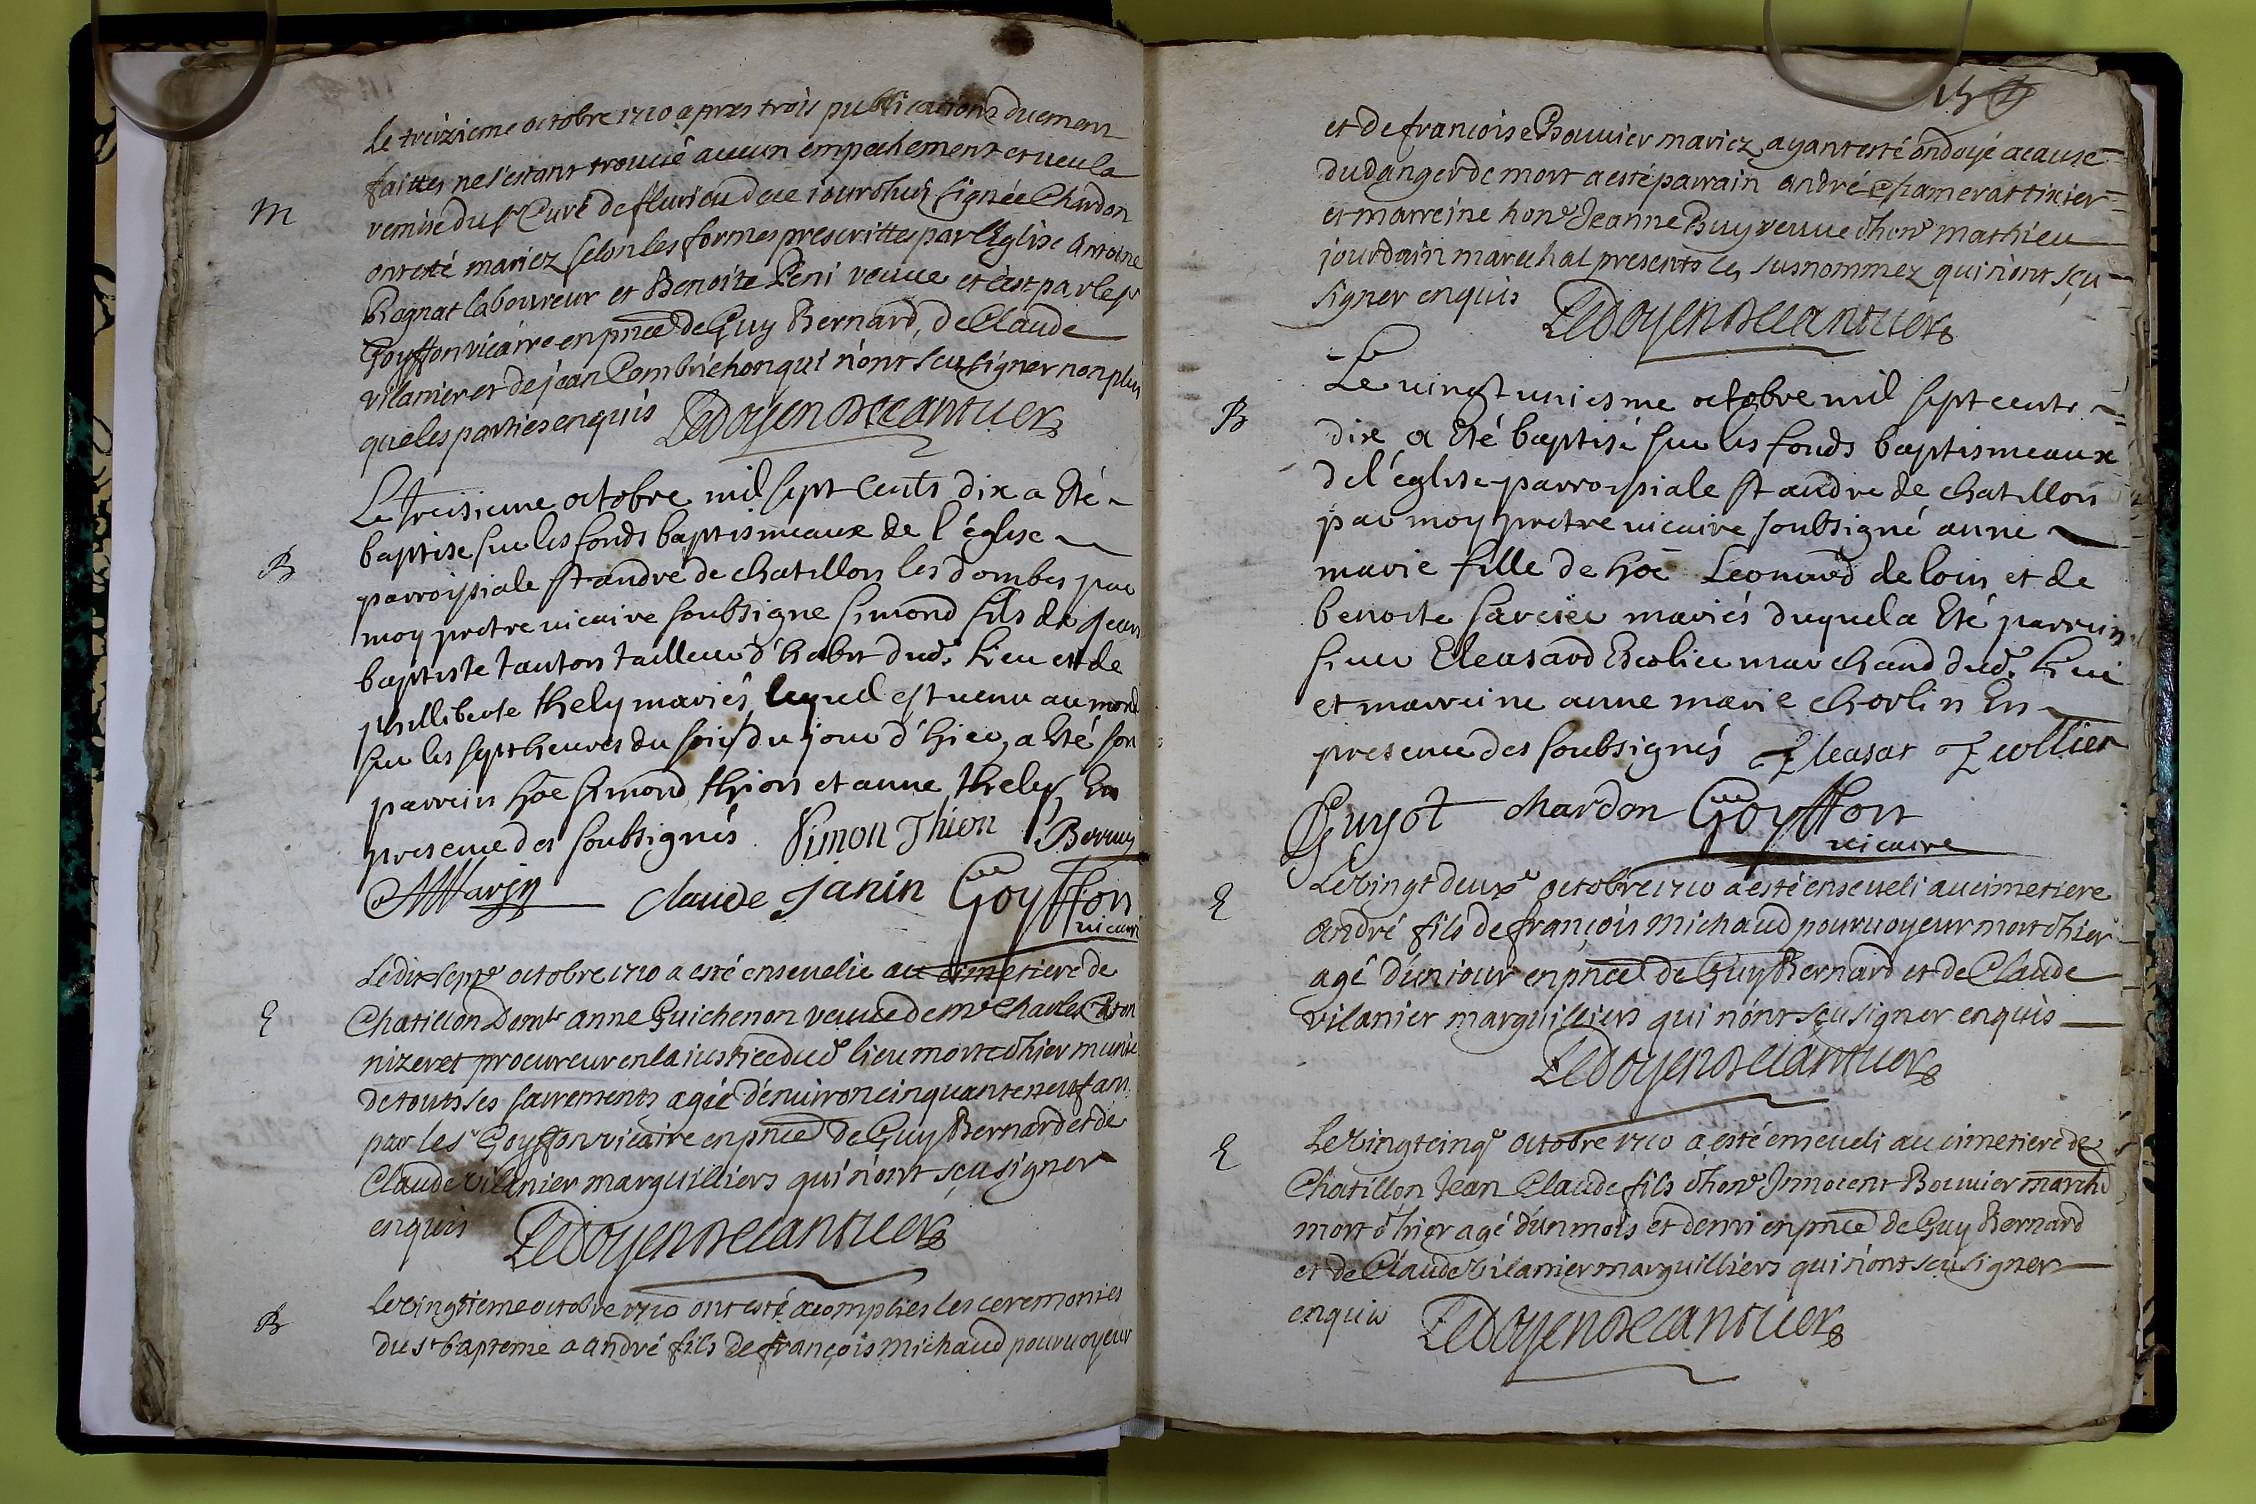 le treizieme octobre 1710 apres trois publications duement
M
faittes ne s'estant trouué aucun empechement et ueu la
remise du sr Curé de flurieu de ce iourdhuy signée Chardon
ont esté mariez selon les formes prescrittes par l'Eglise Antoine
Rognat laboureur et Benoite Péni veuue et c'est par le sr
Goyffon vicaire en pnce de Guy Bernard, de Claude
vilanier et de jean Combrichon qui n'ont scu signer non plus
que les parties enquis Ledoyen De Cantuers
Le treisieme octobre mil sept Cents dix a Eté
B
baptisé sur les fonds baptismeaux de l'églixe
parroissiale st andré de chatillon les dombes par
moy pretre uicaire soubsigné simond fils de Jean
baptiste tauton tailleur d'habit dud. Lieu et de
philliberte thely mariés lequel est uenu au mond
sur les sept heures du soir du jour d'hier, a Eté son
parrein hoe simond thion et anne thely En
presence des soubsignés Simon Thion Berruy
AMarin Claude Janin Goyffon
uicaire
Le dix sepe octobre 1710 a esté enseuelie au cimetiere de
E
Chatillon Demle anne Guichenon veuue de mr Charles
nizeret procureur en la iustice dud lieu morte d'hier munie
de touts ses sacrements agée d'enuiron cinquante neuf an
par le sr Goyffon vicaire en pnce de Guy Bernard et de
Claude vilanier marguilliers qui n'ont sçu signer
enquis Ledoyen De Cantuers
B
Le vingtieme octobre 1710 ont esté acomplies les ceremonies
du st bapteme a andré fils de françois michaud pouruoyeur
et de francoise Bouuier mariez ayant esté ondoyé a cause
du danger de mort a esté parrain andré Chamerat tixier
et marreine hone Jeanne Buy veuue d'hone mathieu
jourdain marechal presents les susnommez qui n'ont sçu
signer enquis Ledoyen De Cantuers
Le uingt uniesme octobre mil sept cents
B
dix a Eté baptisé sur les fonds baptismeaux
de l'églixe parroissiale st andre de chatillon
par moy pretre uicaire soubsigné anne
marie fille de hoe Leonard de loin et de
benoite sarcier mariés duquel a Eté parrein
sieur Eleasard Escolier marchand dud. Lieu
et marreine anne marie chorlin En
presence des soubsignés Eleasar Ecollier
Guyot chardon Goyffon
uicaire
Le vingt deuxe octobre 1710 a esté enseueli au cimetiere
E
andré fils de françois michaud pouruoyeur mort d'hier
agé d'un iour en pnce de Guy Bernard et de Claude
vilanier marguilliers qui n'ont sçu signer enquis
Ledoyen De Cantuers
Le vingt cinqe octobre 1710 a esté enseueli au cimetiere de
E
Chatillon Jean Claude fils d'hone Innocent Bouuier marchd
mort d'hier agé d'un mois et demi en pnce de Guy Bernard
et de Claude vilanier marguilliers qui n'ont scu signer
enquis Ledoyen De Cantuers